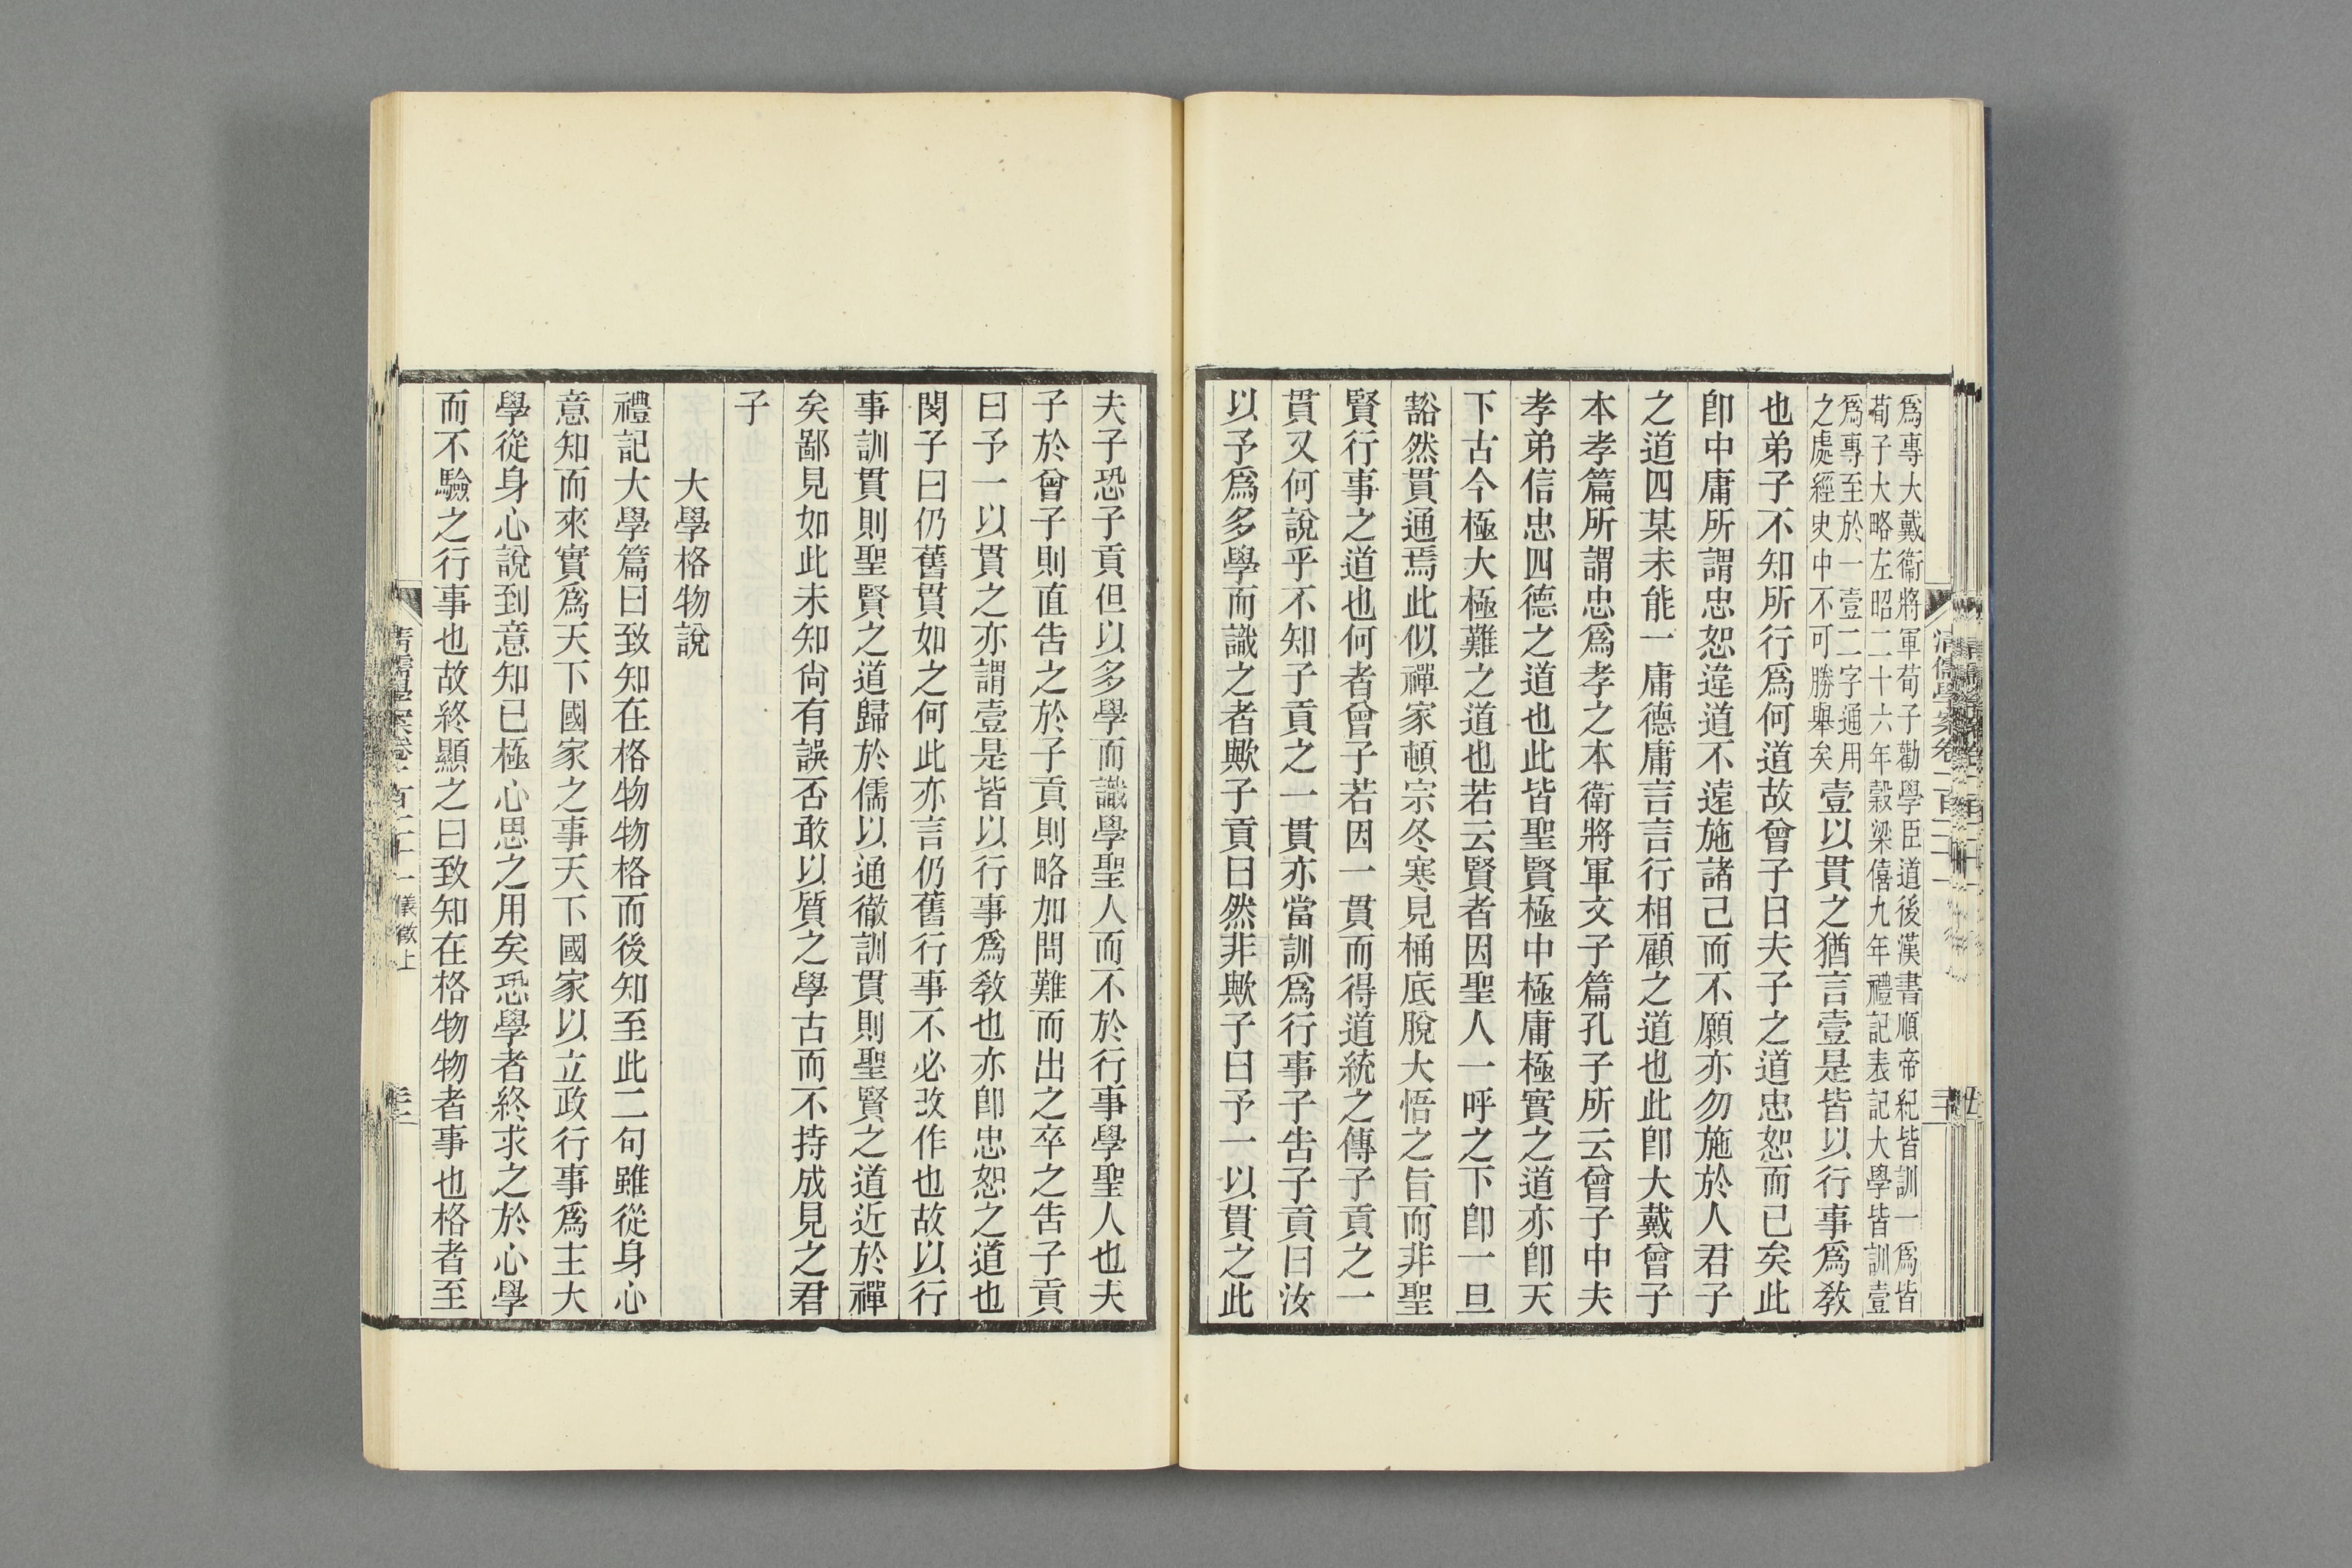 爲專大戴衞將軍荀子勸學臣道後漢書順帝紀皆訓一爲皆
荀子大略左昭二十六年穀梁僖九年禮記表記大學皆訓壹
爲專至於一壹二字通用
之處經史中不可勝舉矣
壹以貫之猶言壹是皆以行事爲敎
也弟子不知所行爲何道故曾子曰夫子之道忠恕而已矣此
卽中庸所謂忠恕違道不遠施諸己而不願亦勿施於人君子
之道四某未能一庸德庸言言行相顧之道也此卽大戴曾子
本孝篇所謂忠爲孝之本衞將軍文子篇孔子所云曾子中夫
孝弟信忠四德之道也此皆聖賢極中極庸極實之道亦卽天
下古今極大極難之道也若云賢者因聖人一呼之下卽一旦
豁然貫通焉此似禪家頓宗冬寒見桶底脫大悟之旨而非聖
賢行事之道也何者曾子若因一貫而得道統之傳子貢之一
貫又何說乎不知子貢之一貫亦當訓爲行事子告子貢曰汝
以予爲多學而識之者歟子貢曰然非歟子曰予一以貫之此
夫子恐子貢但以多學而識學聖人而不於行事學聖人也夫
子於曾子則直告之於子貢則略加問難而出之卒之告子貢
曰予一以貫之亦謂壹是皆以行事爲敎也亦卽忠恕之道也
閔子曰仍舊貫如之何此亦言仍舊行事不必改作也故以行
事訓貫則聖賢之道歸於儒以通徹訓貫則聖賢之道近於禪
矣鄙見如此未知尙有誤否敢以質之學古而不持成見之君
子
大學格物說
禮記大學篇曰致知在格物物格而後知至此二句雖從身心
意知而來實爲天下國家之事天下國家以立政行事爲主大
學從身心說到意知已極心思之用矣恐學者終求之於心學
而不驗之行事也故終顯之曰致知在格物物者事也格者至
清儒學案卷一百二十一 儀徵上